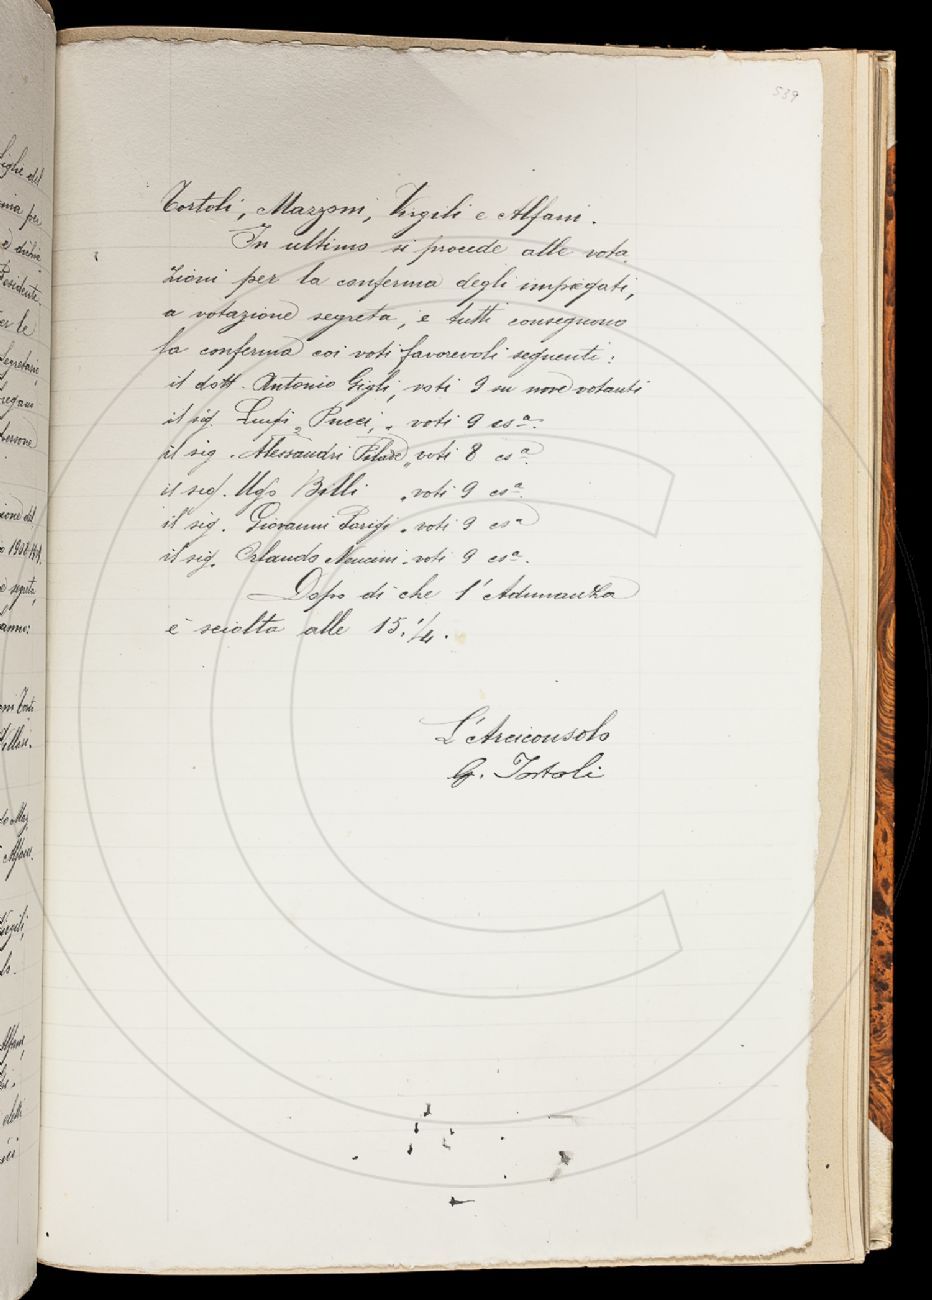 539
Tortoli, Mazzoni, Virgili e Alfani.
In ultimo si procede alle vota
zioni per la conferma degli impiegati,
a votazione segreta, e tutti conseguono
la conferma coi voti favorevoli seguenti:
il dott. Antonio Gigli, voti 9 su nove votanti
il sig. Luigi Pucci, „ voti 9 csª.
il sig. Alessandri Pilade „ voti 8 csª.
il sig. Ugo Billi „ voti 9 csª.
il sig. Giovanni Parigi „ voti 9 csª
il sig. Orlando Nencini „ voti 9 csª.
Dopo di che l'Adunanza
è sciolta alle 15.1/4.
L'Arciconsolo
G. Tortoli